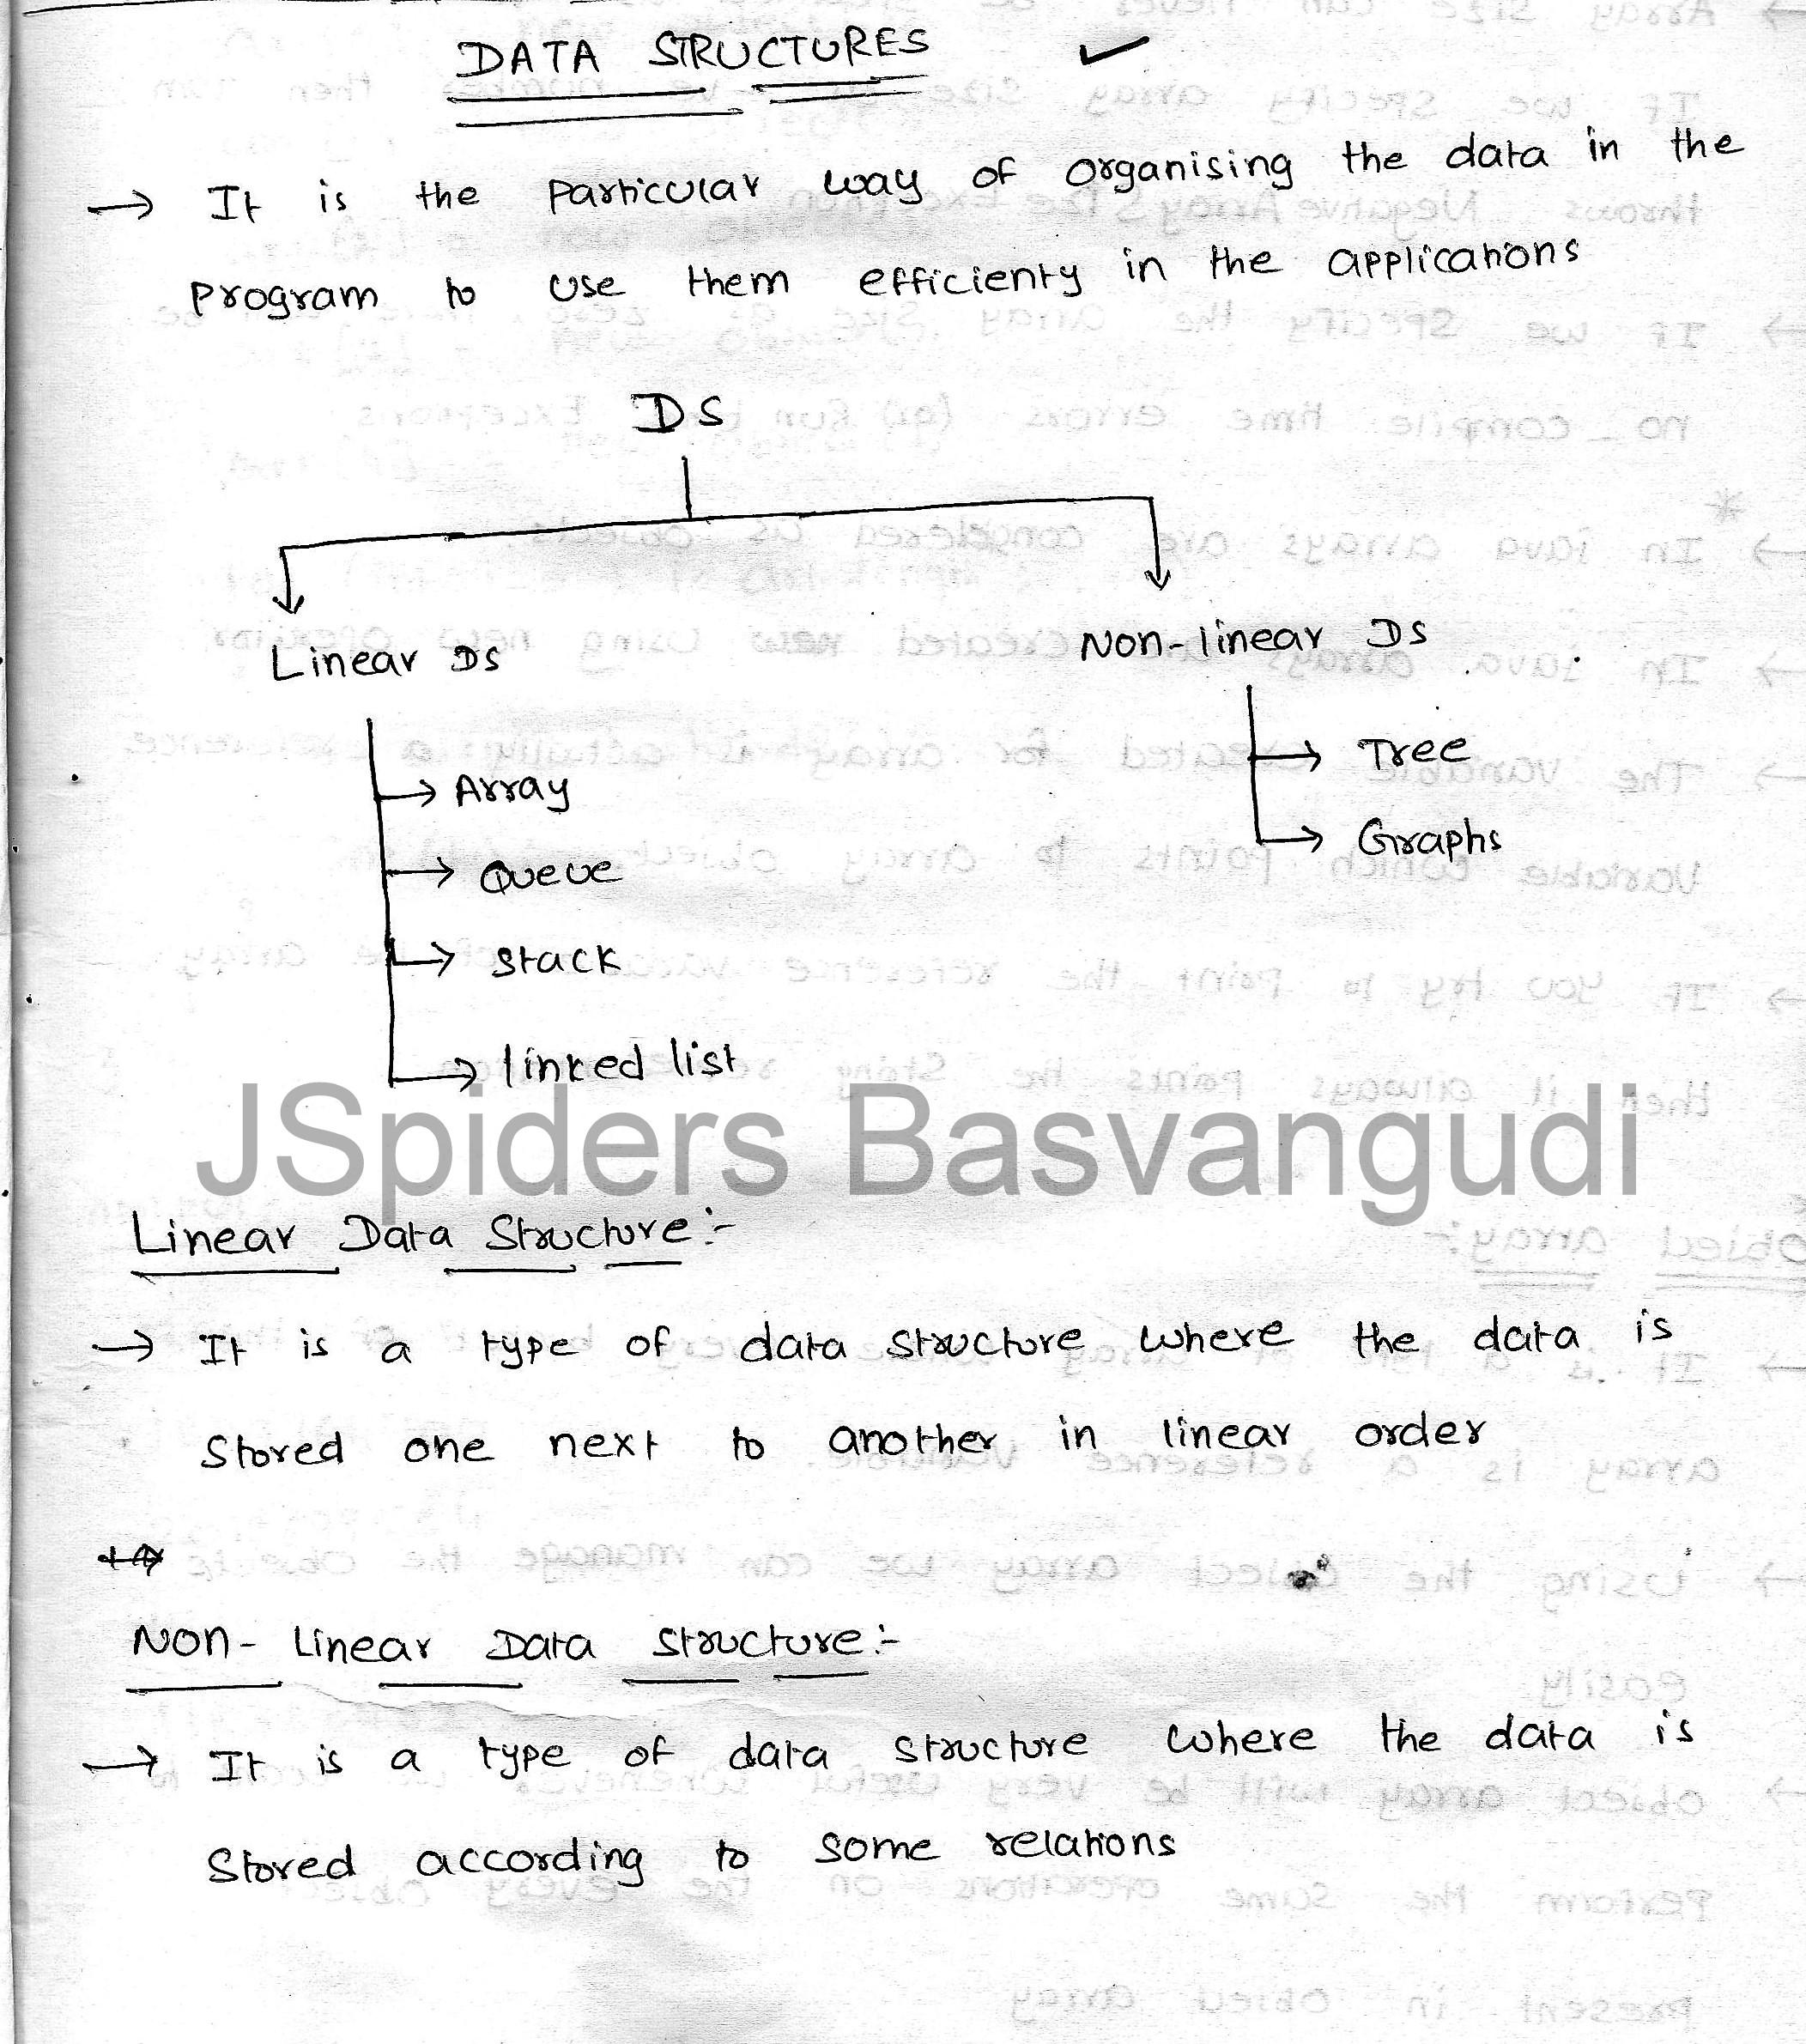 DATA STRUCTURES
→ It is the particular way of organising the data in the
program to use them efficienty in the applications
DS
Linear DS
Non-linear DS
→ Array
→ Queue
→ Stack
→ linked list
→ Tree
→ Graphs
JSpiders Basvangudi
Linear Data Structure:-
→ It is a type of data structure where the data is
Stored one next to another in linear order
Non-Linear Data Structure:-
→ It is a type of data structure where the data is
Stored according to some relations